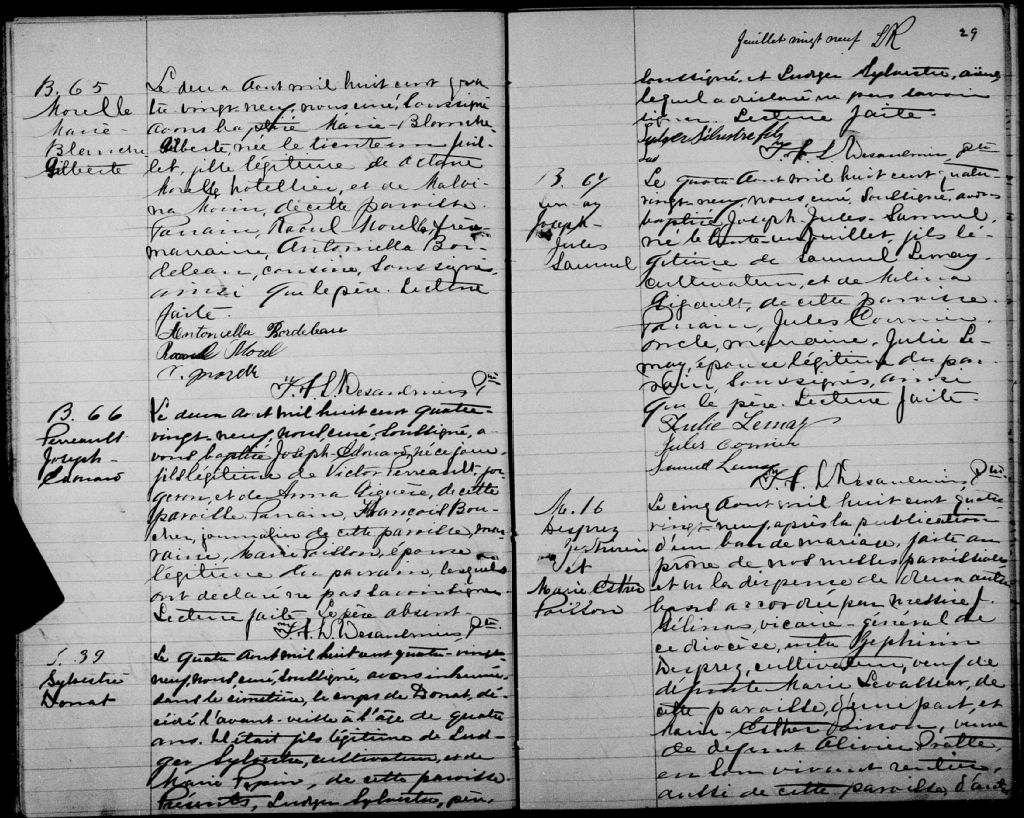 B. 65
Morelle
Marie-
Blanche
Gilberte
Le deux Aout mil huit cent qua-
tre vingt-neuf, nous curé, soussigné
avons baptisé Marie-Blanche-
Gilberte, née le trente un juil-
let, fille légitime de Octave
Morelle hotellier, et de Malvi-
na Morin, de cette paroisse.
Parrain, Raoul Morelle, frère
marraine, Antoniella Bor-
deleau, cousine, soussignés,
ainsi que le père. Lecture
faite.
Antoniella Bordeleau
Raoul Morel
F. A. L. Desaulniers Ptre
B. 66
Perreault
Joseph-
Edouard
Le deux Aout mil huit cent quatre-
vingt-neuf, nous curé, soussigné, a-
vons baptisé Joseph-Edouard, né ce jour
fils légitime de Victor Perreault, for-
geron, et de Anna Giguère, de cette
paroisse. Parrain, François Bou-
cher, journalier de cette paroisse, mar-
raine, Marie Poisson, épouse
légitime du parrain, lesquels
ont déclaré ne pas savoir signer.
Lecture faite. Le père absent.
F. A. L. Desaulniers Ptre
S. 39
Sylvestre
Donat
Le quatre Aout mil huit cent quatre-vingt-
neuf, nous curé, soussigné, avons inhumé
dans le cimetière, le corps de Donat, dé-
cédé l'avant-veille à l'âge de quatre
ans. Il était fils légitime de Lud-
ger Sylvestre, cultivateur, et de
Marie Pepin, de cette paroisse.
Présents, Ludger Sylvestre, père,
Feuillet vingt neuf LR 29
soussigné, et Ludger Sylvestre, aïeul
lequel a déclaré ne pas savoir
signer. Lecture faite.
Ludger Silvestre fils
F. A. L. Desaulniers Ptre
B. 67
Lemay
Joseph-
Jules
Samuel
Le quatre Aout mil huit cent quatre
vingt-neuf, nous curé, soussigné, avons
baptisé Joseph-Jules-Samuel,
né le trente-un Juillet, fils lé-
gitime de Samuel Lemay,
cultivateur, et de Mélina
Gigault, de cette paroisse.
Parrain, Jules Cormier,
oncle, marraine, Julie Le-
may, épouse légitime du par-
rain, soussignés, ainsi
que le père. Lecture faite.
Julie Lemay
Jules Cormier
Samuel Lemay
F. A. L. Desaulniers Ptre
M. 16
Desprez
Zephirin
et
Marie Esther
Poisson
Le cinq Aout mil huit cent quatre
vingt-neuf, après la publication
d'un ban de mariage, faite au
prône de nos messes paroissiales
et vu la dispense de deux autres
bans accordée par messire J.
Gélinas, vicaire-général de
ce diocèse, entre Zephirin
Desprez, cultivateur, veuf de
défunte Marie Levasseur, de
cette paroisse, d'une part, et
Marie-Esther Poisson, veuve
de défunt Olivier Pratte,
en son vivant rentier,
aussi de cette paroisse, d'autre